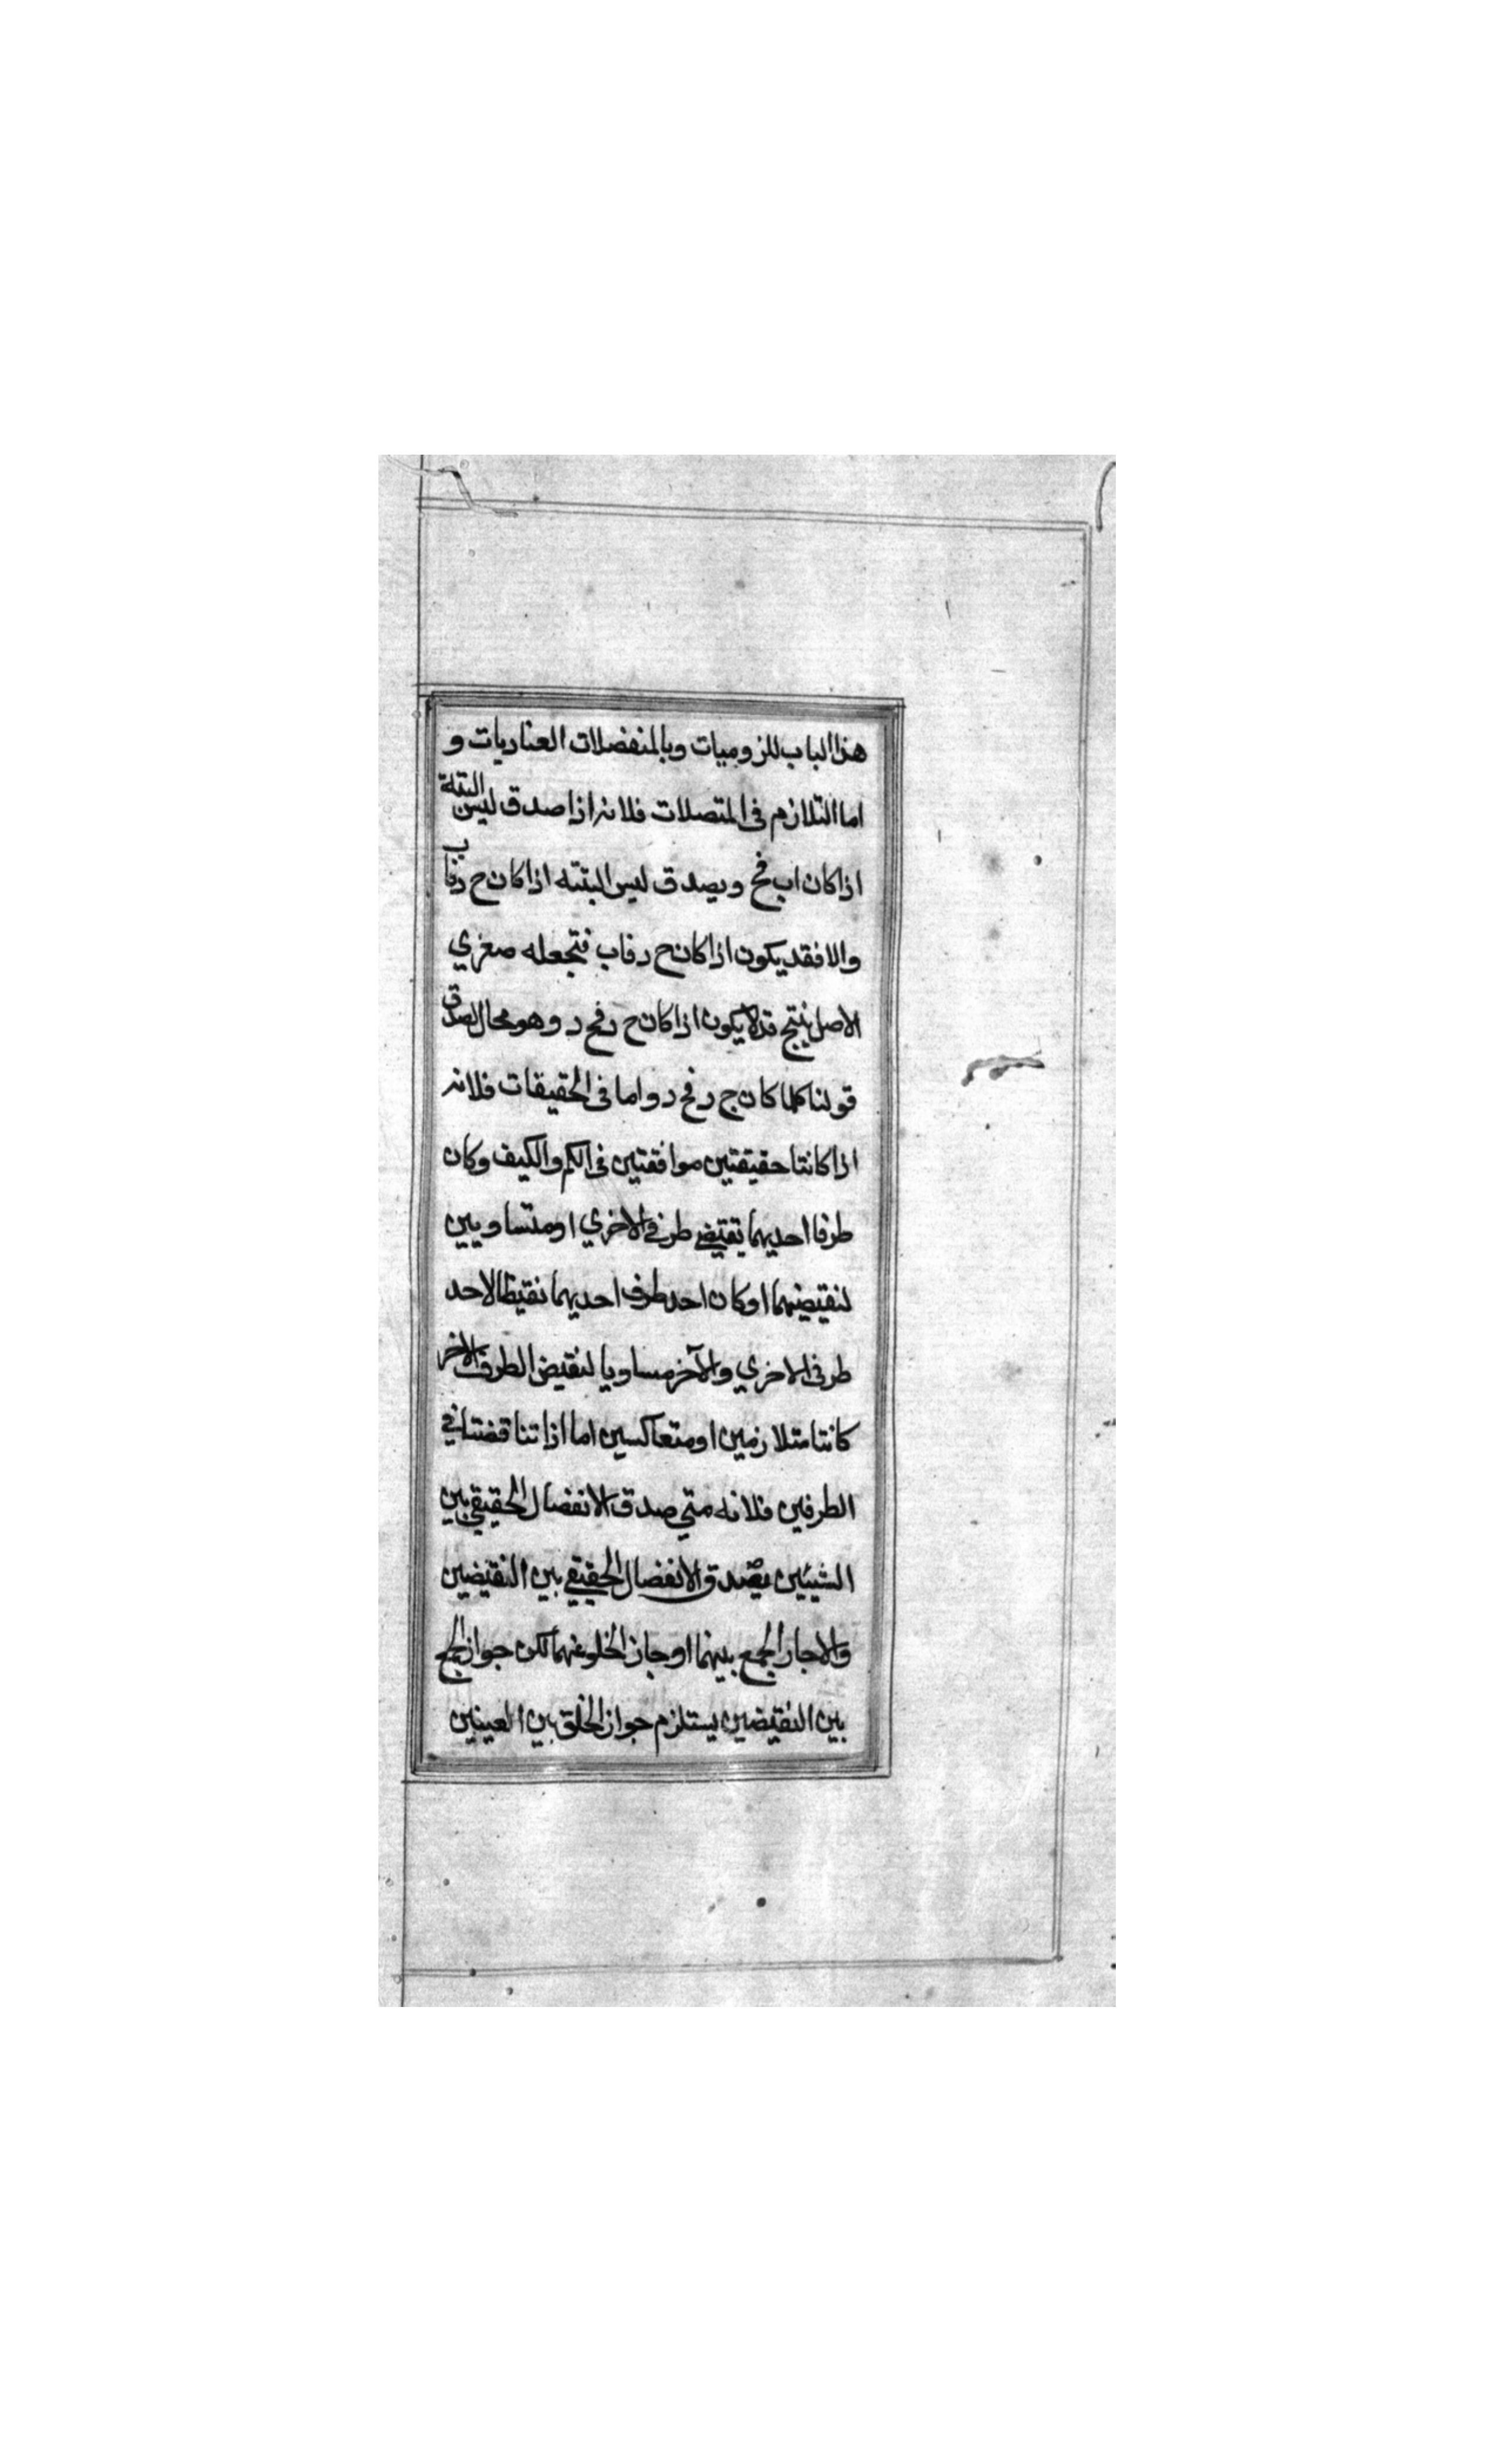 هذا الباب للزوميات وبالمنفصلات العناديات و
اما التلازم فى المتصلات فلانه اذا صدق ليس البتة
اذا كان اب فج ويصدق ليس البتته اذا كان ح د فاب
والا فقد يكون اذا كان ح د فاب فتجعله صغري
الاصل ينتج قد لا يكون اذا كان ح د فج د وهو محال لصدق
قولنا كلما كان ج د فج د واما فى الحقيقات فلانه
اذا كانتا حقيقتين موافقتين فى الكم والكيف وكان
طرفا احديهما نقيضي طرفي الاخري او متساويين
لنقيضيهما او كان احد طرف احديهما نقيظا لاحد
طرفى الاخري والآخر مساويا لنقيض الطرف الاخر
كانتا متلازمين او متعاكسين اما اذا تناقضتا في
الطرفين فلانه متي صدق الانفصال الحقيقي بين
الشيئين يصدق الانفصال الحقيقي بين النقيضين
والا جاز الجمع بينهما او جاز الخلو عنهما لكن جواز الجمع
بين النقيضين يستلزم جواز الخلو بين العينين